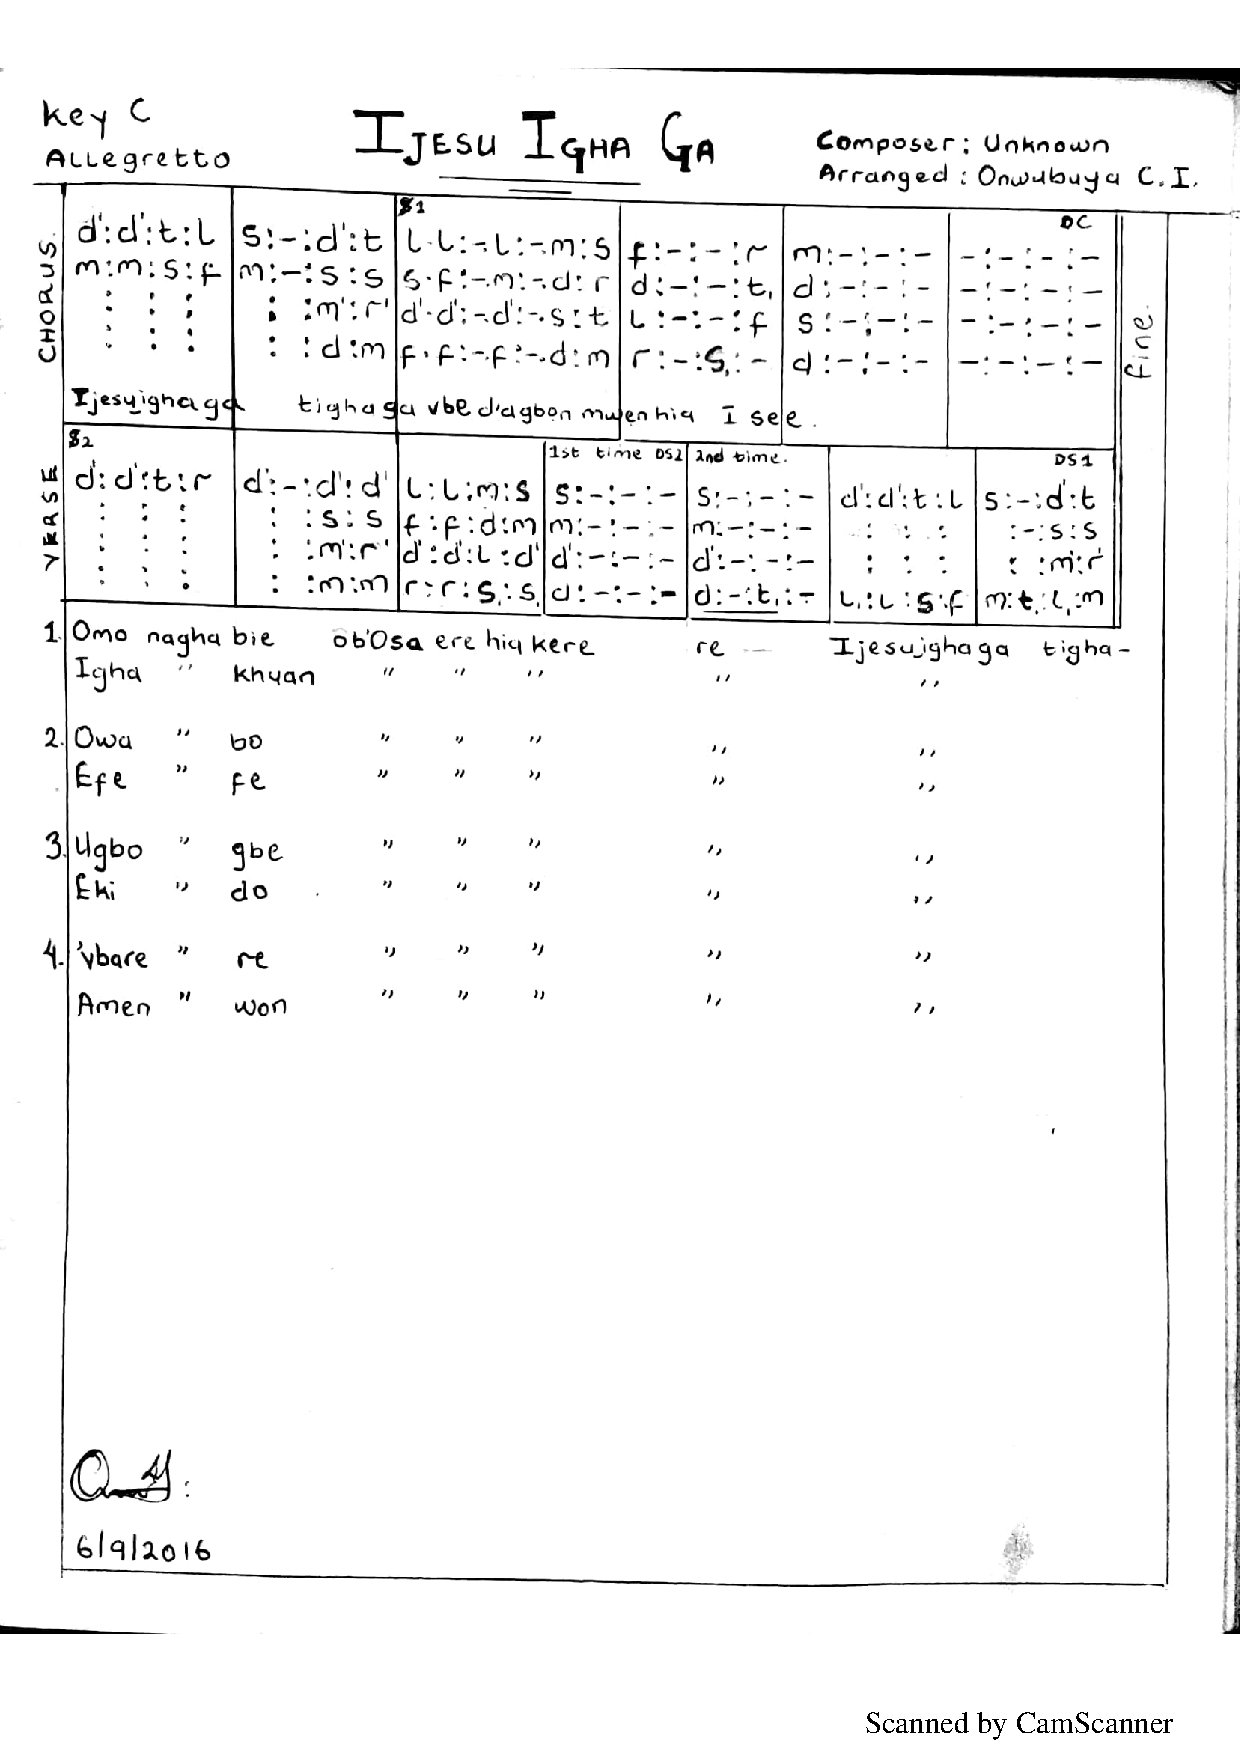 key C
Allegretto
IJESU IGHA GA
Composer: Unknown
Arranged: Onwubuya C.I.
CHORUS.
$1
DC
d':d':t:l | s:-:d':t | l.l:-.l:-.m:s | f:-:-:r | m:-:-:- | -:-:-:-
m:m:s:f | m:-:s:s | s.f:-.m:-.d:r | d:-:-:t, | d:-:-:- | -:-:-:-
: : : | : :m':r' | d'.d':-.d':-.s:t | l:-:-:f | s:-:-:- | -:-:-:-
: : : | : :d:m | f.f:-.f:-.d:m | r:-:s,:- | d:-:-:- | -:-:-:-
fine.
Ijesuighaga tighaga vbe d'agbon mwen hia I see.
VERSE
$2
1st time DS2 | 2nd time.
DS1
d':d':t:r | d':-:d':d' | l:l:m:s | s:-:-:- | s:-:-:- | d':d':t:l | s:-:d':t
: : : | : :s:s | f:f:d:m | m:-:-:- | m:-:-:- | : : : | :-:s:s
: : : | : :m':r' | d':d':l:d' | d':-:-:- | d':-:-:- | : : : | : :m':r'
: : : | : :m:m | r:r:s,:s, | d:-:-:- | d:-:t,:- | l,:l:s:f | m:t,:l,:m
1. Omo nagha bie ob'Osa ere hia kere re — Ijesuighaga tigha-
Igha " khuan " " " " "
2. Owa " bo " " " " "
Efe " fe " " " " "
3. Ugbo " gbe " " " " "
Eki " do " " " " "
4. 'vbare " re " " " " "
Amen " won " " " " "
6/9/2016
Scanned by CamScanner